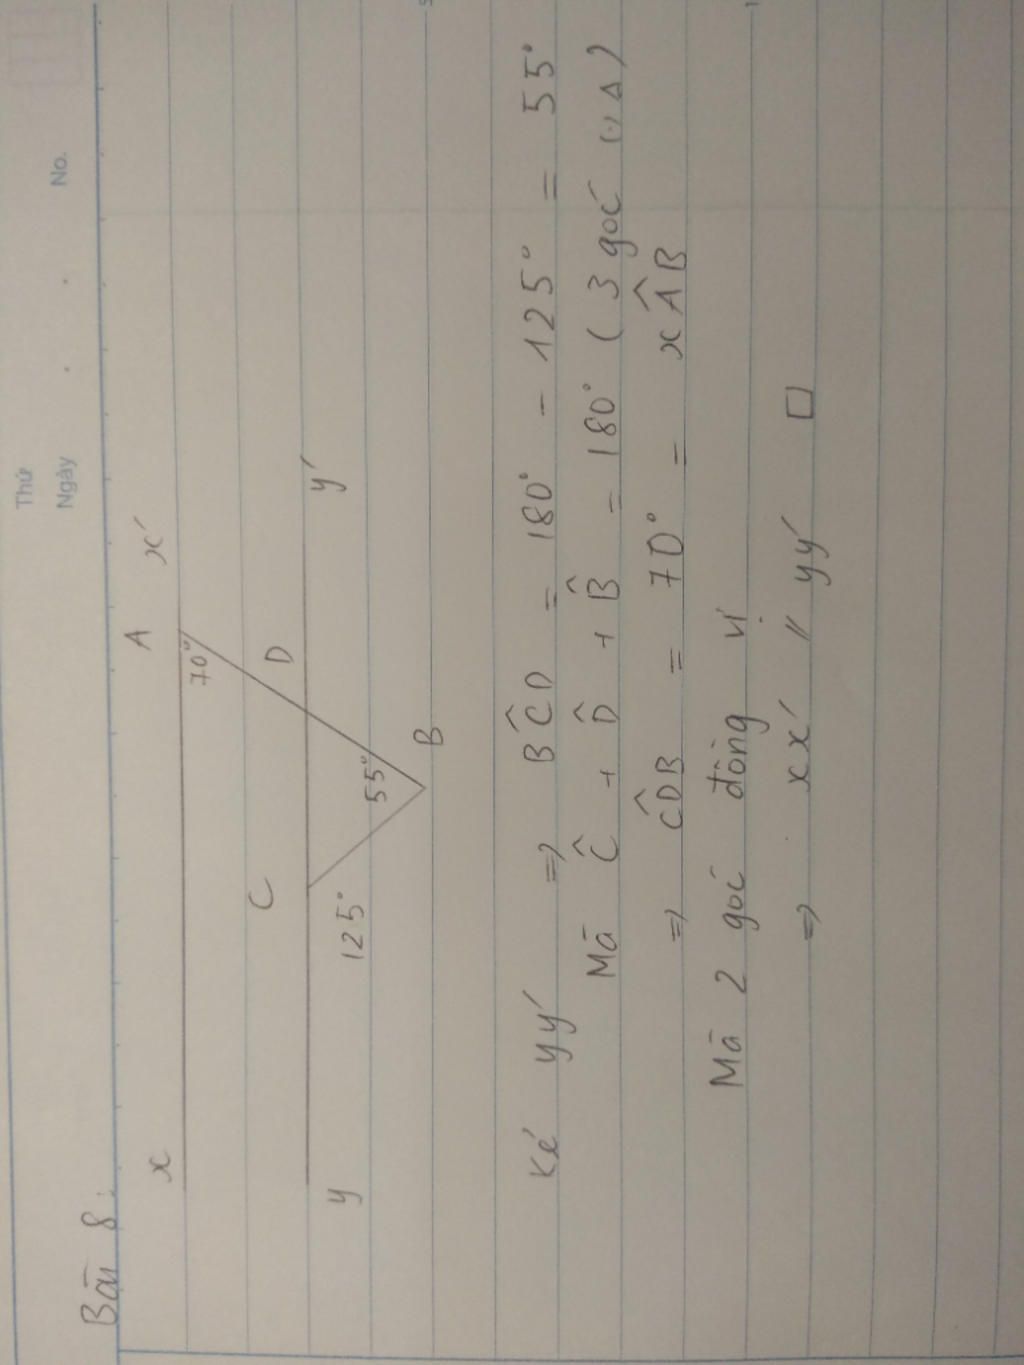 Thứ
Ngày . . No.
Bài 8:
A x'
x
70°
C D
y'
125° 55°
y
B
Kẻ yy' => BĈD = 180° - 125° = 55°
Mà Ĉ + D̂ + B̂ = 180° ( 3 góc △ )
=> ĈDB = 70° = xÂB
Mà 2 góc đồng vị
=> xx' // yy' □